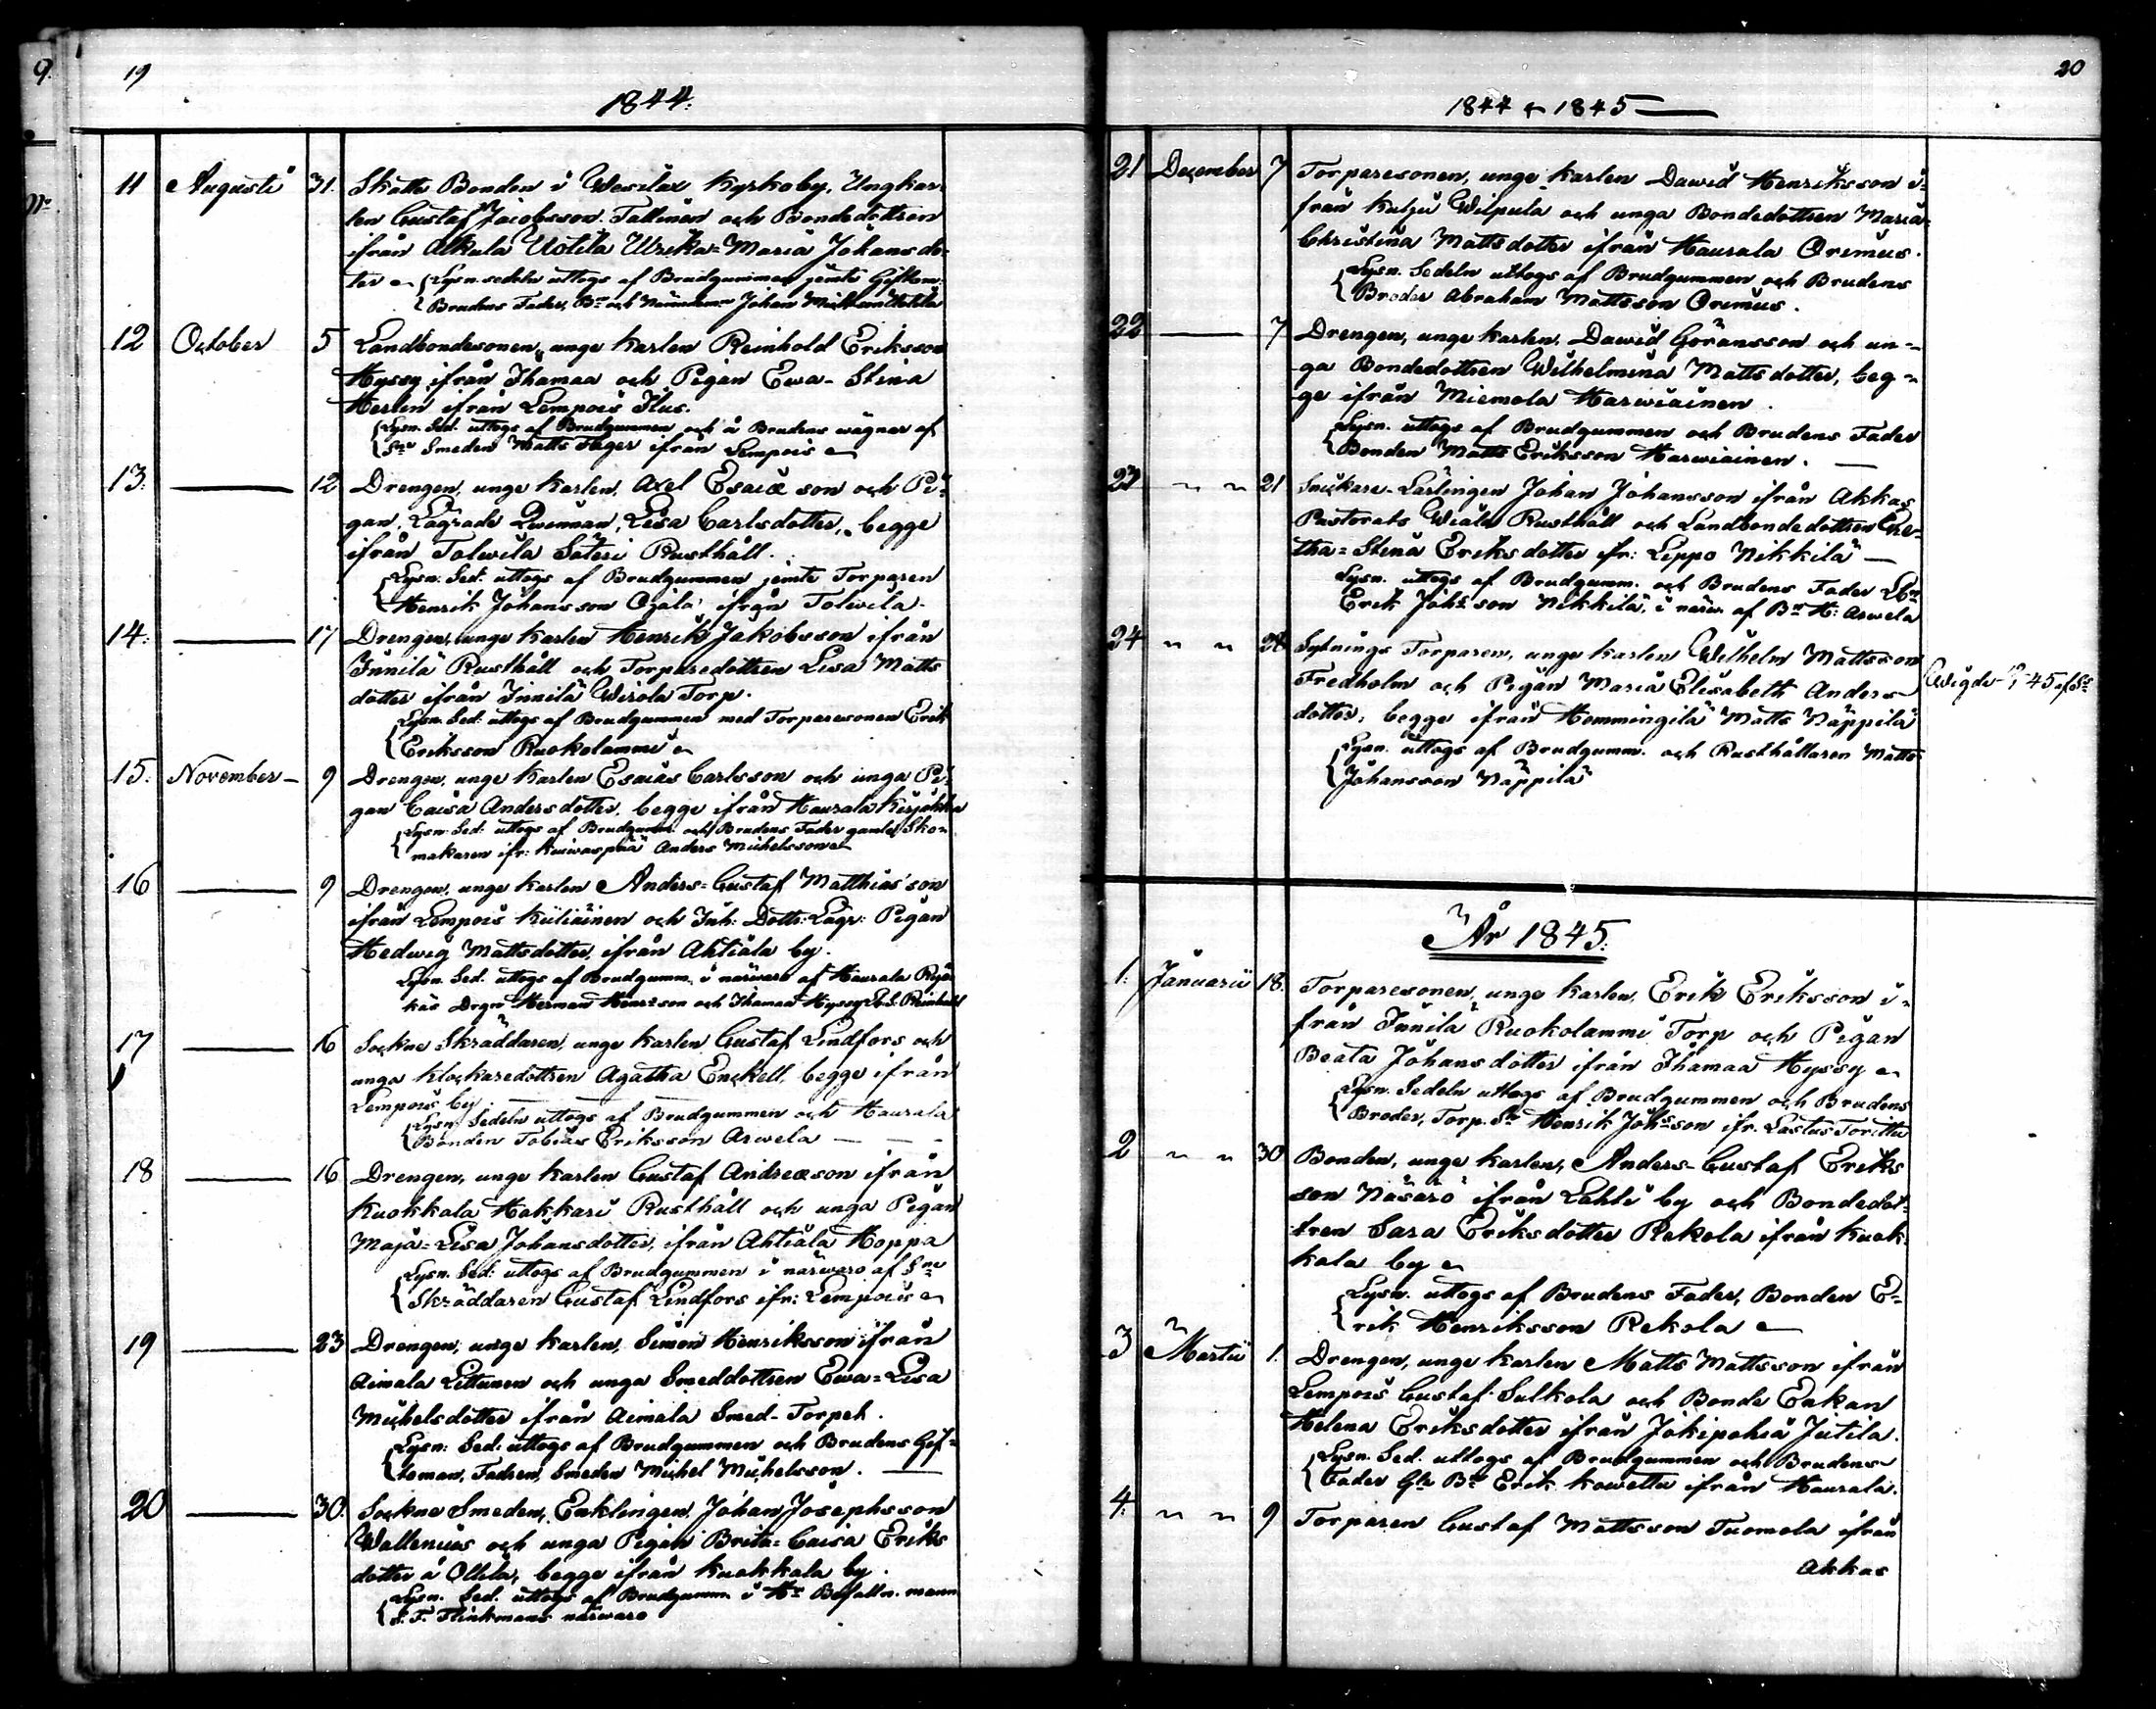 9.
19
1844.
11 Augusti 31. Skatte Bonden i Wesilax Kyrkoby, Ungkar-
len Gustaf Jacobsson Tallman och Bondedottren
ifrån Alkula Uotila Ulrika-Maria Johansdot-
ter Lysn. sedeln uttogs af Brudgummen jemte Giftom.
Brudens Fader, Bn och Nämndem. Johan
12 October 5 Landbondesonen, unge Karlen Reinhold Eriksson
Hyssy ifrån Ihamaa och Pigan Ewa-Stina
Herlin ifrån Lempois Ilus.
Lysn. Sed. uttogs af Brudgummen och å Brudens wägnar af
Sne Smeden Matts Fager ifrån Lempois
13. 12 Drengen, unge Karlen, Axel Esaiæ son och Pi-
gan, Lägrade Qwinnan, Lisa Carlsdotter, begge
ifrån Tolwila Säteri Rusthåll.
Lysn. Sed. uttogs af Brudgummen jemte Torparen
Henrik Johansson Ojala ifrån Tolwila.
14. 17 Drengen, unge Karlen Henrik Jakobsson ifrån
Innilä Rusthåll och Torparedottren Lisa Matts
dotter ifrån Innilä Wirola Torp.
Lysn. Sed. uttogs af Brudgummen med Torparesonen Erik
Eriksson Ruokolammi
15. November 9 Drengen, unge Karlen Esaias Carlsson och unga Pi-
gan Caisa Andersdotter, begge ifrån Haurala
Lysn. Sed. uttogs af Brudgumm. och Brudens Fader gamle Sko-
makaren ifr: Kuiwaspää Anders Michelsson
16 9 Drengen, unge Karlen Anders-Gustaf Matthias'son
ifrån Lempois Kuliäinen och Inh: Dottr: Lägr: Pigan
Hedwig Mattsdotter, ifrån Ahtiala by.
Lysn. Sed. uttogs af Brudgumm. i närwaro af Haurala
Drgn Herman Henrsson och Ihamaa Hyssy Reinhold
17 16 Sockne Skräddaren, unge Karlen Gustaf Lindfors och
unga Klockaredottren Agatha Enckell, begge ifrån
Lempois by.
Lysn. Sedeln uttogs af Brudgummen och Haurala
Bonden Tobias Eriksson Arwela
18 16 Drengen, unge Karlen Gustaf Andreæson ifrån
Kuokkala Hakkari Rusthåll och unga Pigan
Maja-Lisa Johansdotter, ifrån Ahtiala Hoppa
Lysn. Sed: uttogs af Brudgummen i närwaro af Sne
Skräddaren Gustaf Lindfors ifr: Lempois
19 23 Drengen, unge Karlen, Simon Henriksson ifrån
Aimala Littunen och unga Smeddottren Ewa-Lisa
Michelsdotter ifrån Aimala Smed-Torpet.
Lysn: Sed: uttogs af Brudgummen och Brudens Gif-
toman, Fadren, Smeden Michel Michelsson.
20 30. Sockne Smeden, Enklingen Johan Josephsson
Wallenius och unga Pigan Brita-Caisa Eriks
dotter å Ollila, begge ifrån Kuokkala by.
Lysn. Sed. uttogs af Brudgumm i Hr Befalln. mann
J. F. Flinkmans närwaro
20
1844 & 1845
21 December 7 Torparesonen, unge Karlen Dawid Henriksson i-
från Kulju Wilpula och unga Bondedottren Maria-
Christina Mattsdotter ifrån Haurala Orimus.
Lysn. Sedeln uttogs af Brudgummen och Brudens
Broder Abraham Mattsson Orimus.
22 7 Drengen, unge Karlen, Dawid Göransson och un-
ga Bondedottren Wilhelmina Mattsdotter, beg-
ge ifrån Miemola Harwiainen.
Lysn. uttogs af Brudgummen och Brudens Fader
Bonden Matts Eriksson Harwiainen.
23 " " 21 Snickare-Lärlingen Johan Johansson ifrån Akkas
Pastorats Wiala Rusthåll och Landbondedottren Gre-
tha-Stina Eriksdotter ifr: Leppo Nikkilä
Lysn. uttogs af Brudgumm. och Brudens Fader
Erik Johsson Nikkilä, i närw. af Bn H: Arwela
24 " " 28 Sytnings Torparen, unge Karlen Wilhelm Mattsson
Fredholm och Pigan Maria Elisabeth Anders
dotter, begge ifrån Hemmingilä Matts Näppilä
Wigde 45 af
Lysn. uttogs af Brudgumm. och Rusthållaren Matts
Johansson Näppilä
År 1845.
1. Januarii 18. Torparesonen, unge Karlen, Erik Eriksson i-
från Innilä Ruokolammi Torp och Pigan
Beata Johansdotter ifrån Ihamaa Hyssy
Lysn. Sedeln uttogs af Brudgummen och Brudens
Broder, Torp. Sn Henrik Johsson ifr. Lastus
2 " " 30 Bonden, unge Karlen, Anders-Gustaf Eriks
son Näsärö ifrån Lahti by och Bondedot-
tren Sara Eriksdotter Rekola ifrån Kuok-
kala by
Lysn. uttogs af Brudens Fader, Bonden E-
rik Henriksson Rekola
3 Martii 1. Drengen, unge Karlen Matts Mattsson ifrån
Lempois Gustaf-Sulkola och Bonde Enkan
Helena Eriksdotter ifrån Jokipohia Jutila.
Lysn. Sed. uttogs af Brudgummen och Brudens
Fader Gle Bn Erik Kowettu ifrån Haurala.
4. " " 9 Torparen Gustaf Mattsson Tuomola ifrån
Akkas